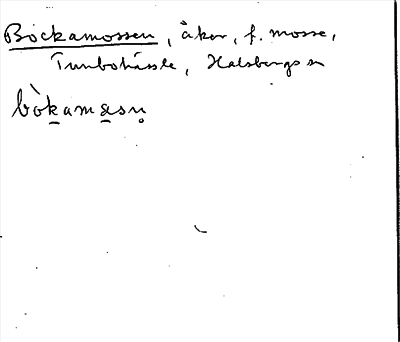 Bockamossen, åker, f. mosse,
Tunbohässle, Halsbergs sn
bòkamasn̥